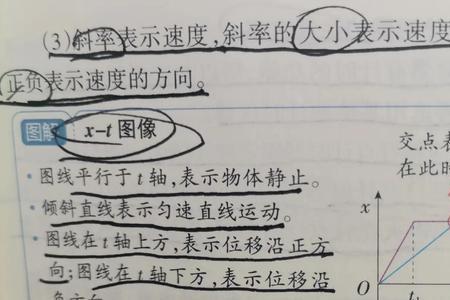 (3)斜率表示速度,斜率的大小表示速度
正负表示速度的方向。
图解 x-t 图像
· 图线平行于 t 轴,表示物体静止。
· 倾斜直线表示匀速直线运动。
· 图线在 t 轴上方,表示位移沿正方
向;图线在 t 轴下方,表示位移沿
交点表
在此时
x
O